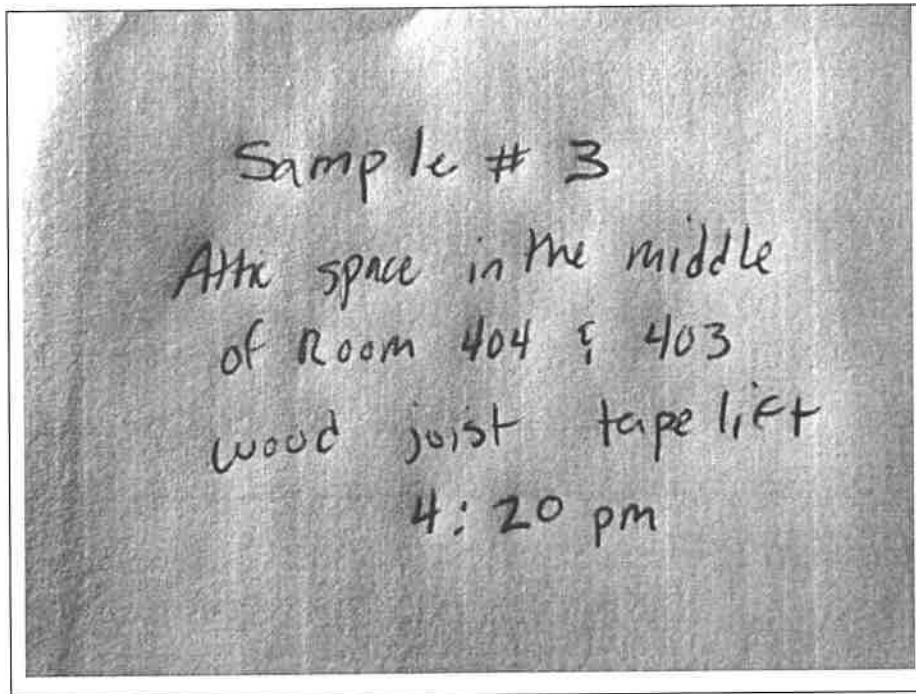 Sample # 3
Attic space in the middle
of Room 404 & 403
wood joist tape lift
4:20 pm